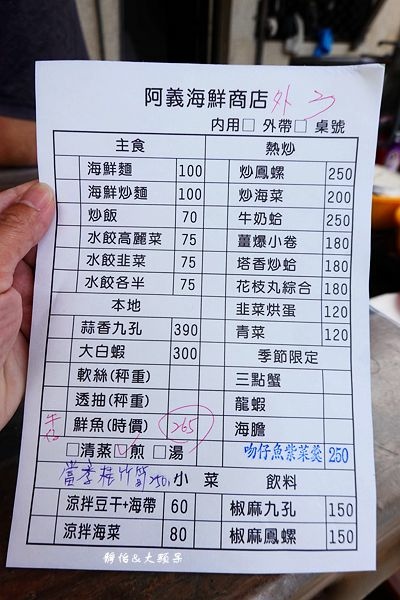 阿義海鮮商店 外 3
內用□ 外帶□ 桌號
主食 熱炒
海鮮麵 100 炒鳳螺 250
海鮮炒麵 100 炒海菜 200
炒飯 70 牛奶蛤 250
水餃高麗菜 75 薑爆小卷 180
水餃韭菜 75 塔香炒蛤 180
水餃各半 75 花枝丸綜合 180
本地 韭菜烘蛋 120
蒜香九孔 390 青菜 120
大白蝦 300 季節限定
軟絲(秤重) 三點蟹
透抽(秤重) 龍蝦
鮮魚(時價) 265 海膽
□清蒸 □煎 □湯 吻仔魚紫菜羹 250
當季桂竹筍250 小菜 飲料
涼拌豆干+海帶 60 椒麻九孔 150
涼拌海菜 80 椒麻鳳螺 150
靜怡&大顆呆